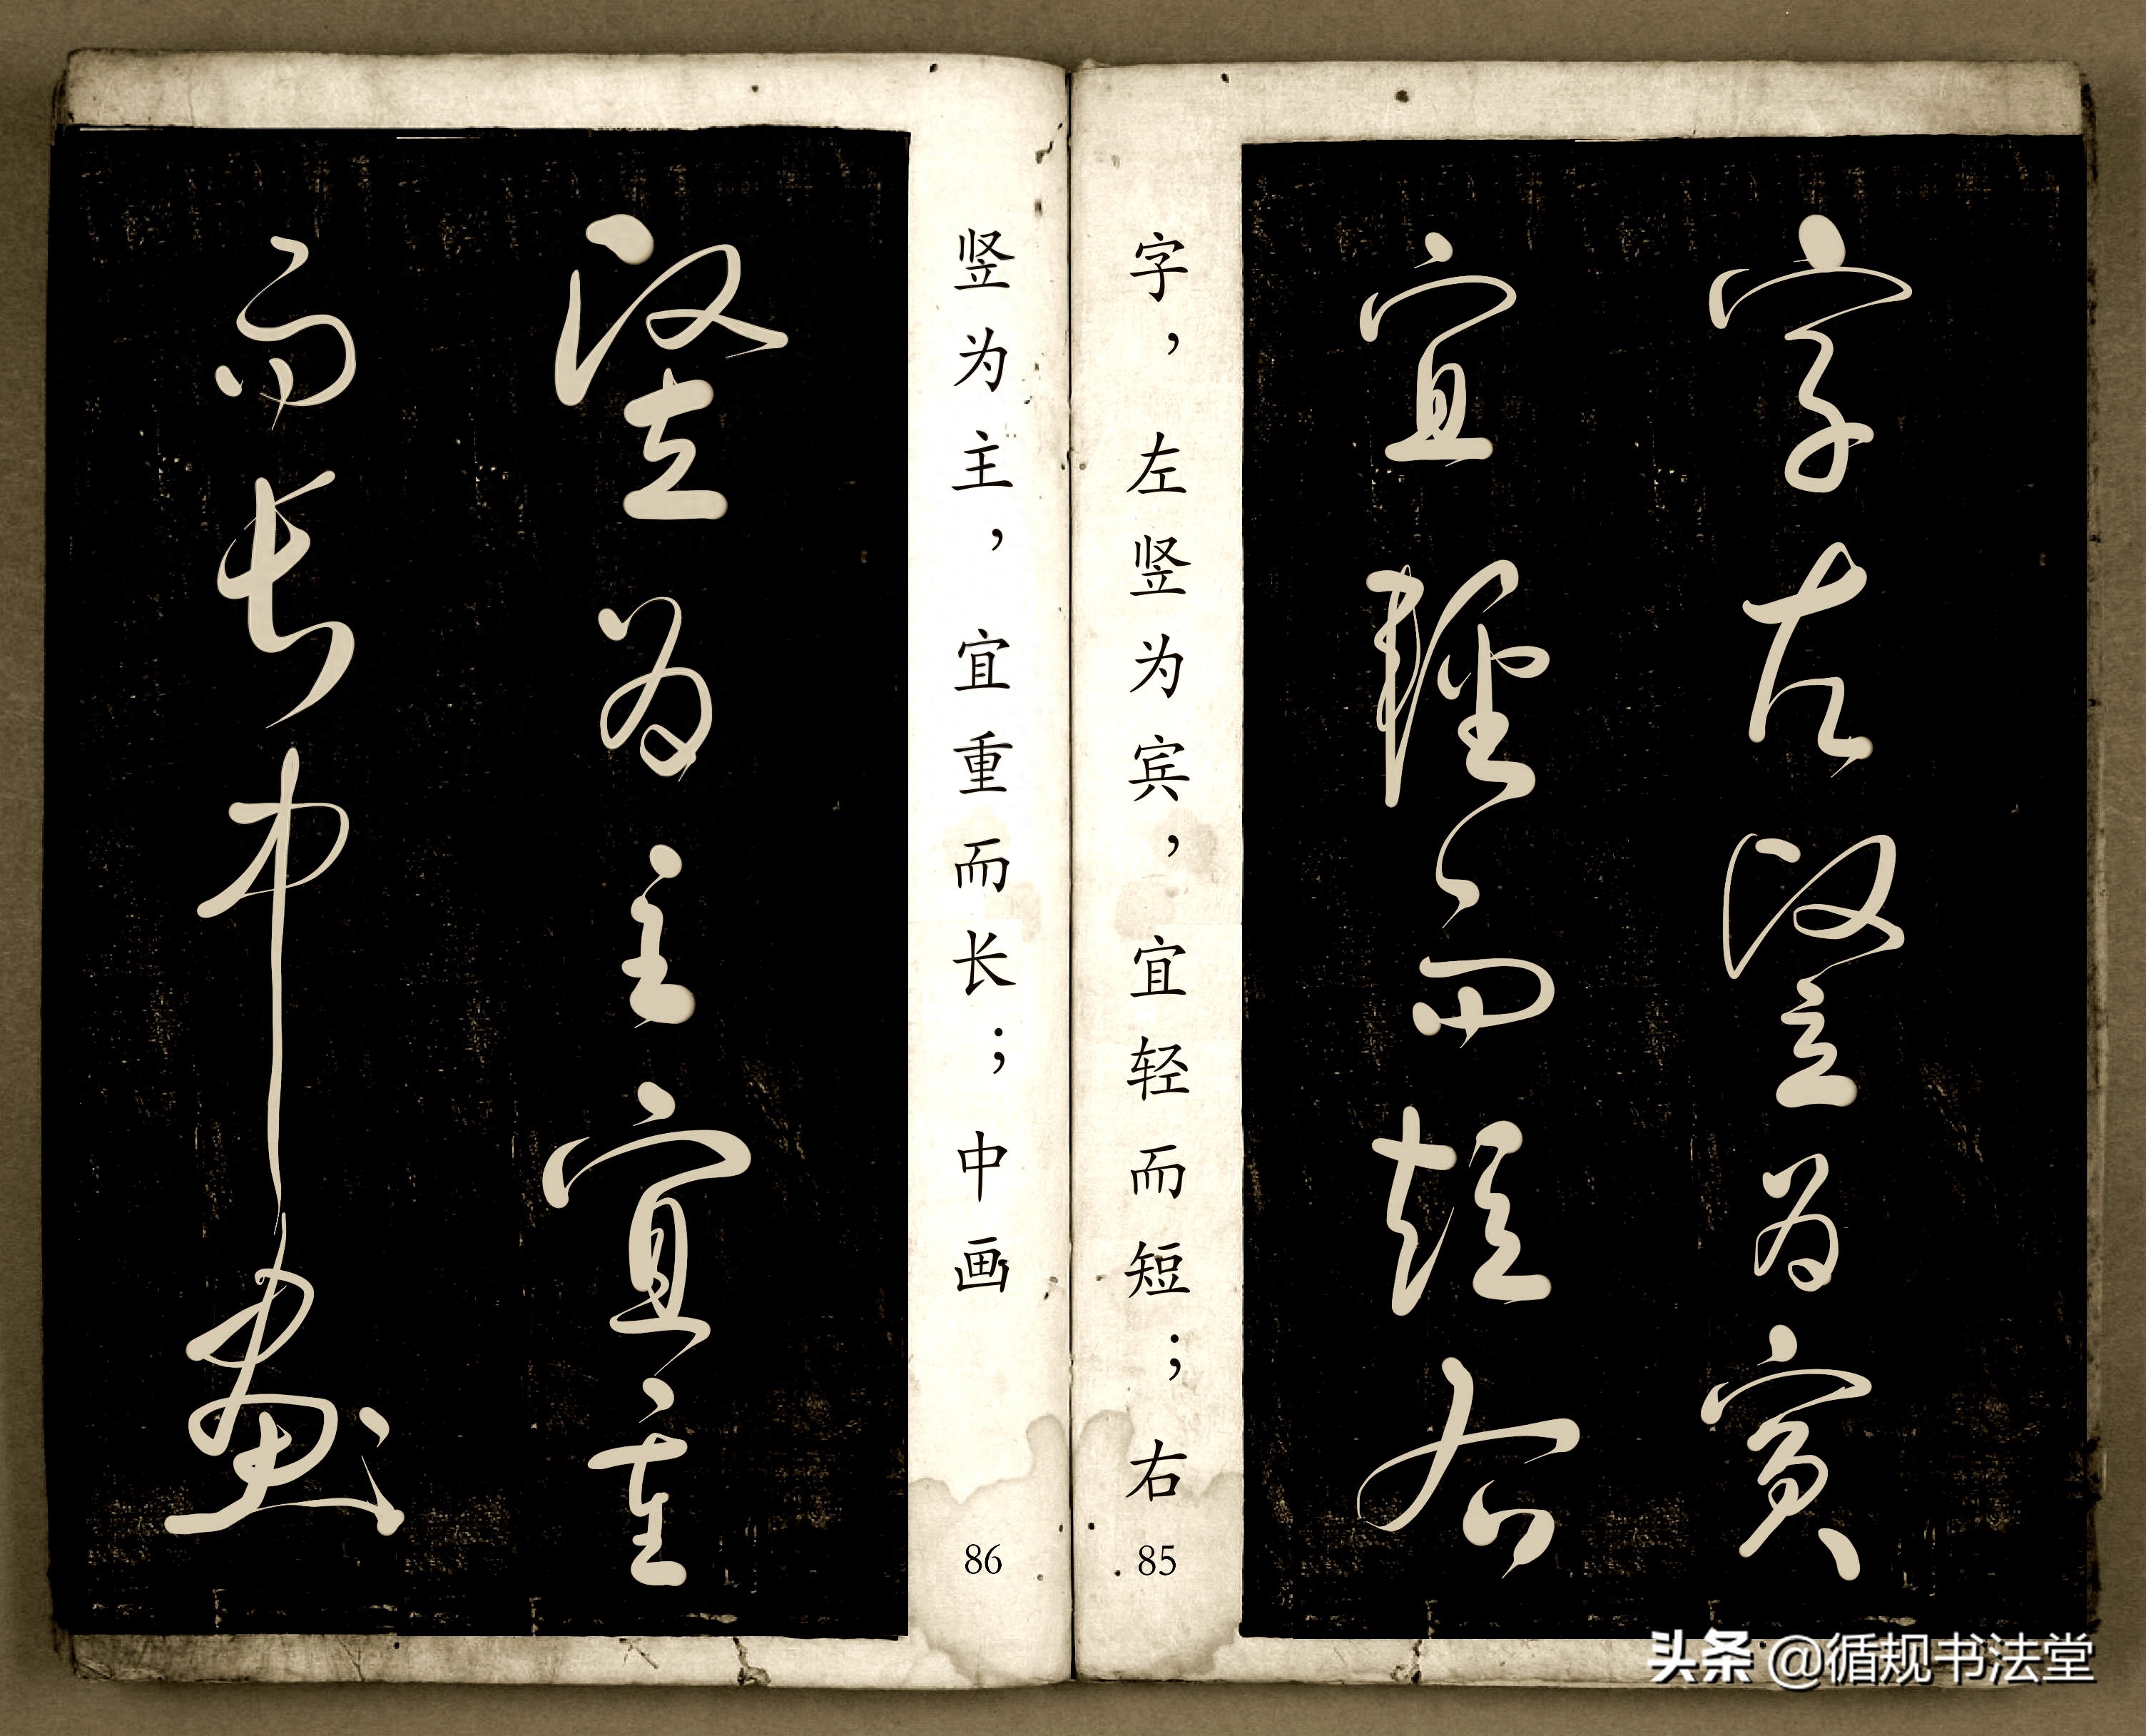 字左竖为宾
宜轻而短右
字，左竖为宾，宜轻而短；右
85
竖为主宜重
而长中画
竖为主，宜重而长；中画
86
头条 @循规书法堂